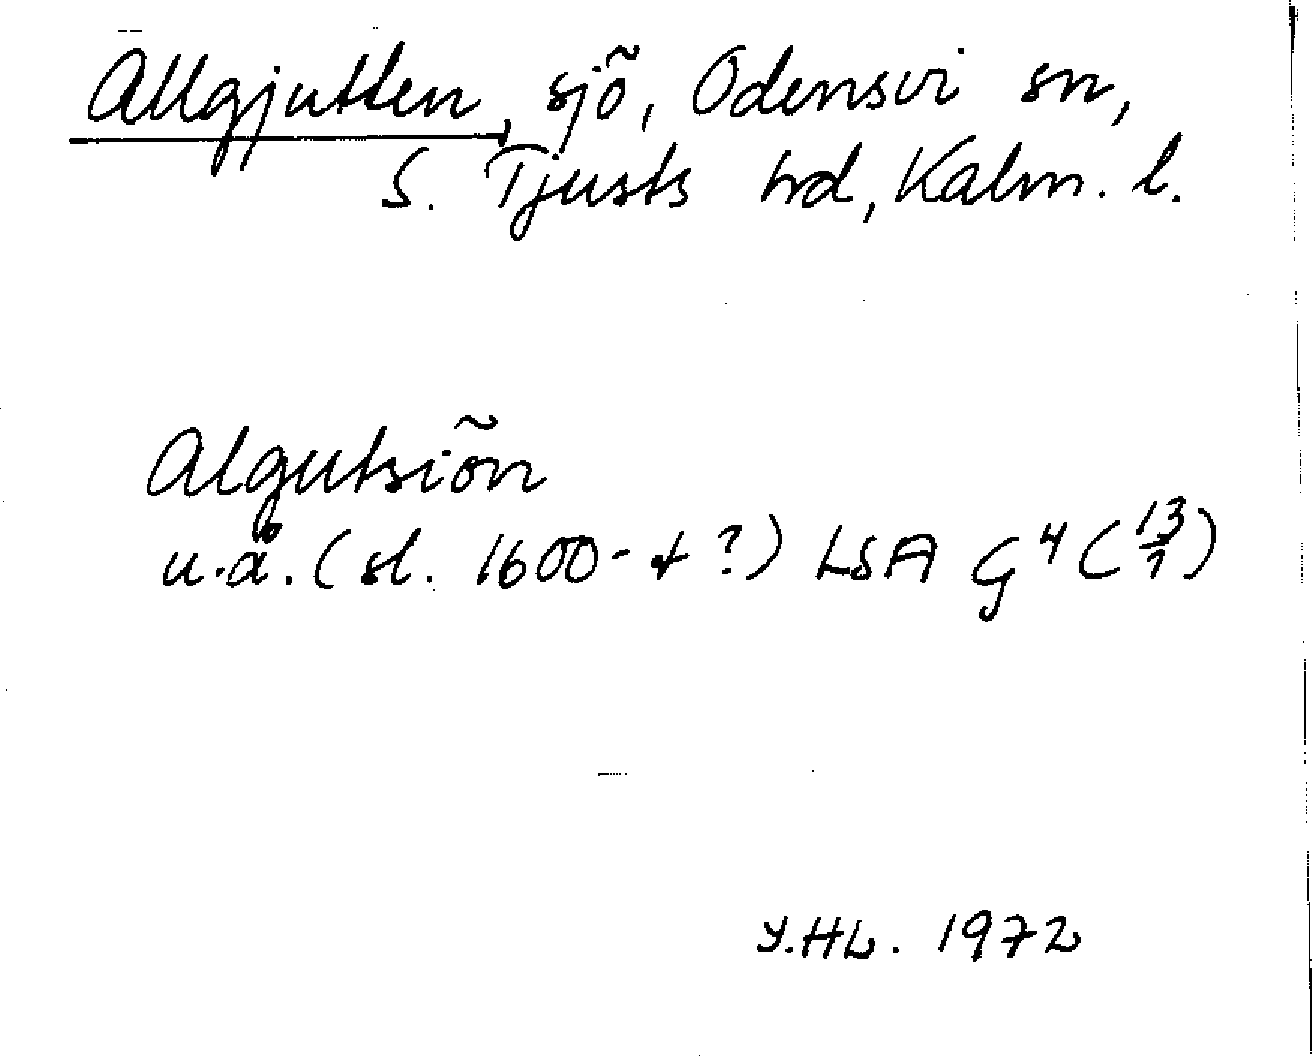 Allgjutten, sjö, Odensvi sn,
S. Tjusts hd, Kalm. l.
Algutsiön
u.å. (sl. 1600-t?) LSA G4 (13/1)
Y.HL. 1972